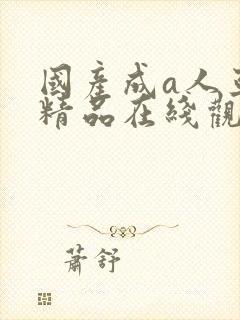 國產成a人
精品在綫觀
蕭舒